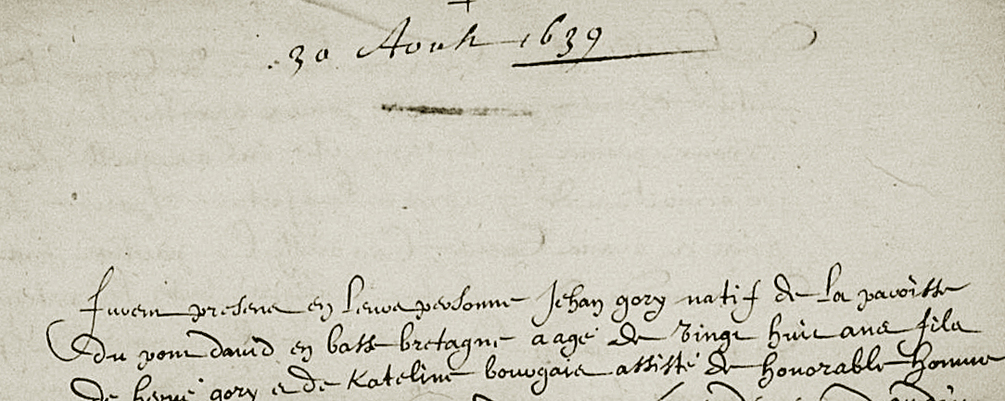 30 Aoust 1639
Furent present en leurs personne Jehan gory natif de la paroisse
du pont david en basse bretagne aagé de vingt huit ans fils
de hervé gory et de Kateline bourgais assisté de honorable homme